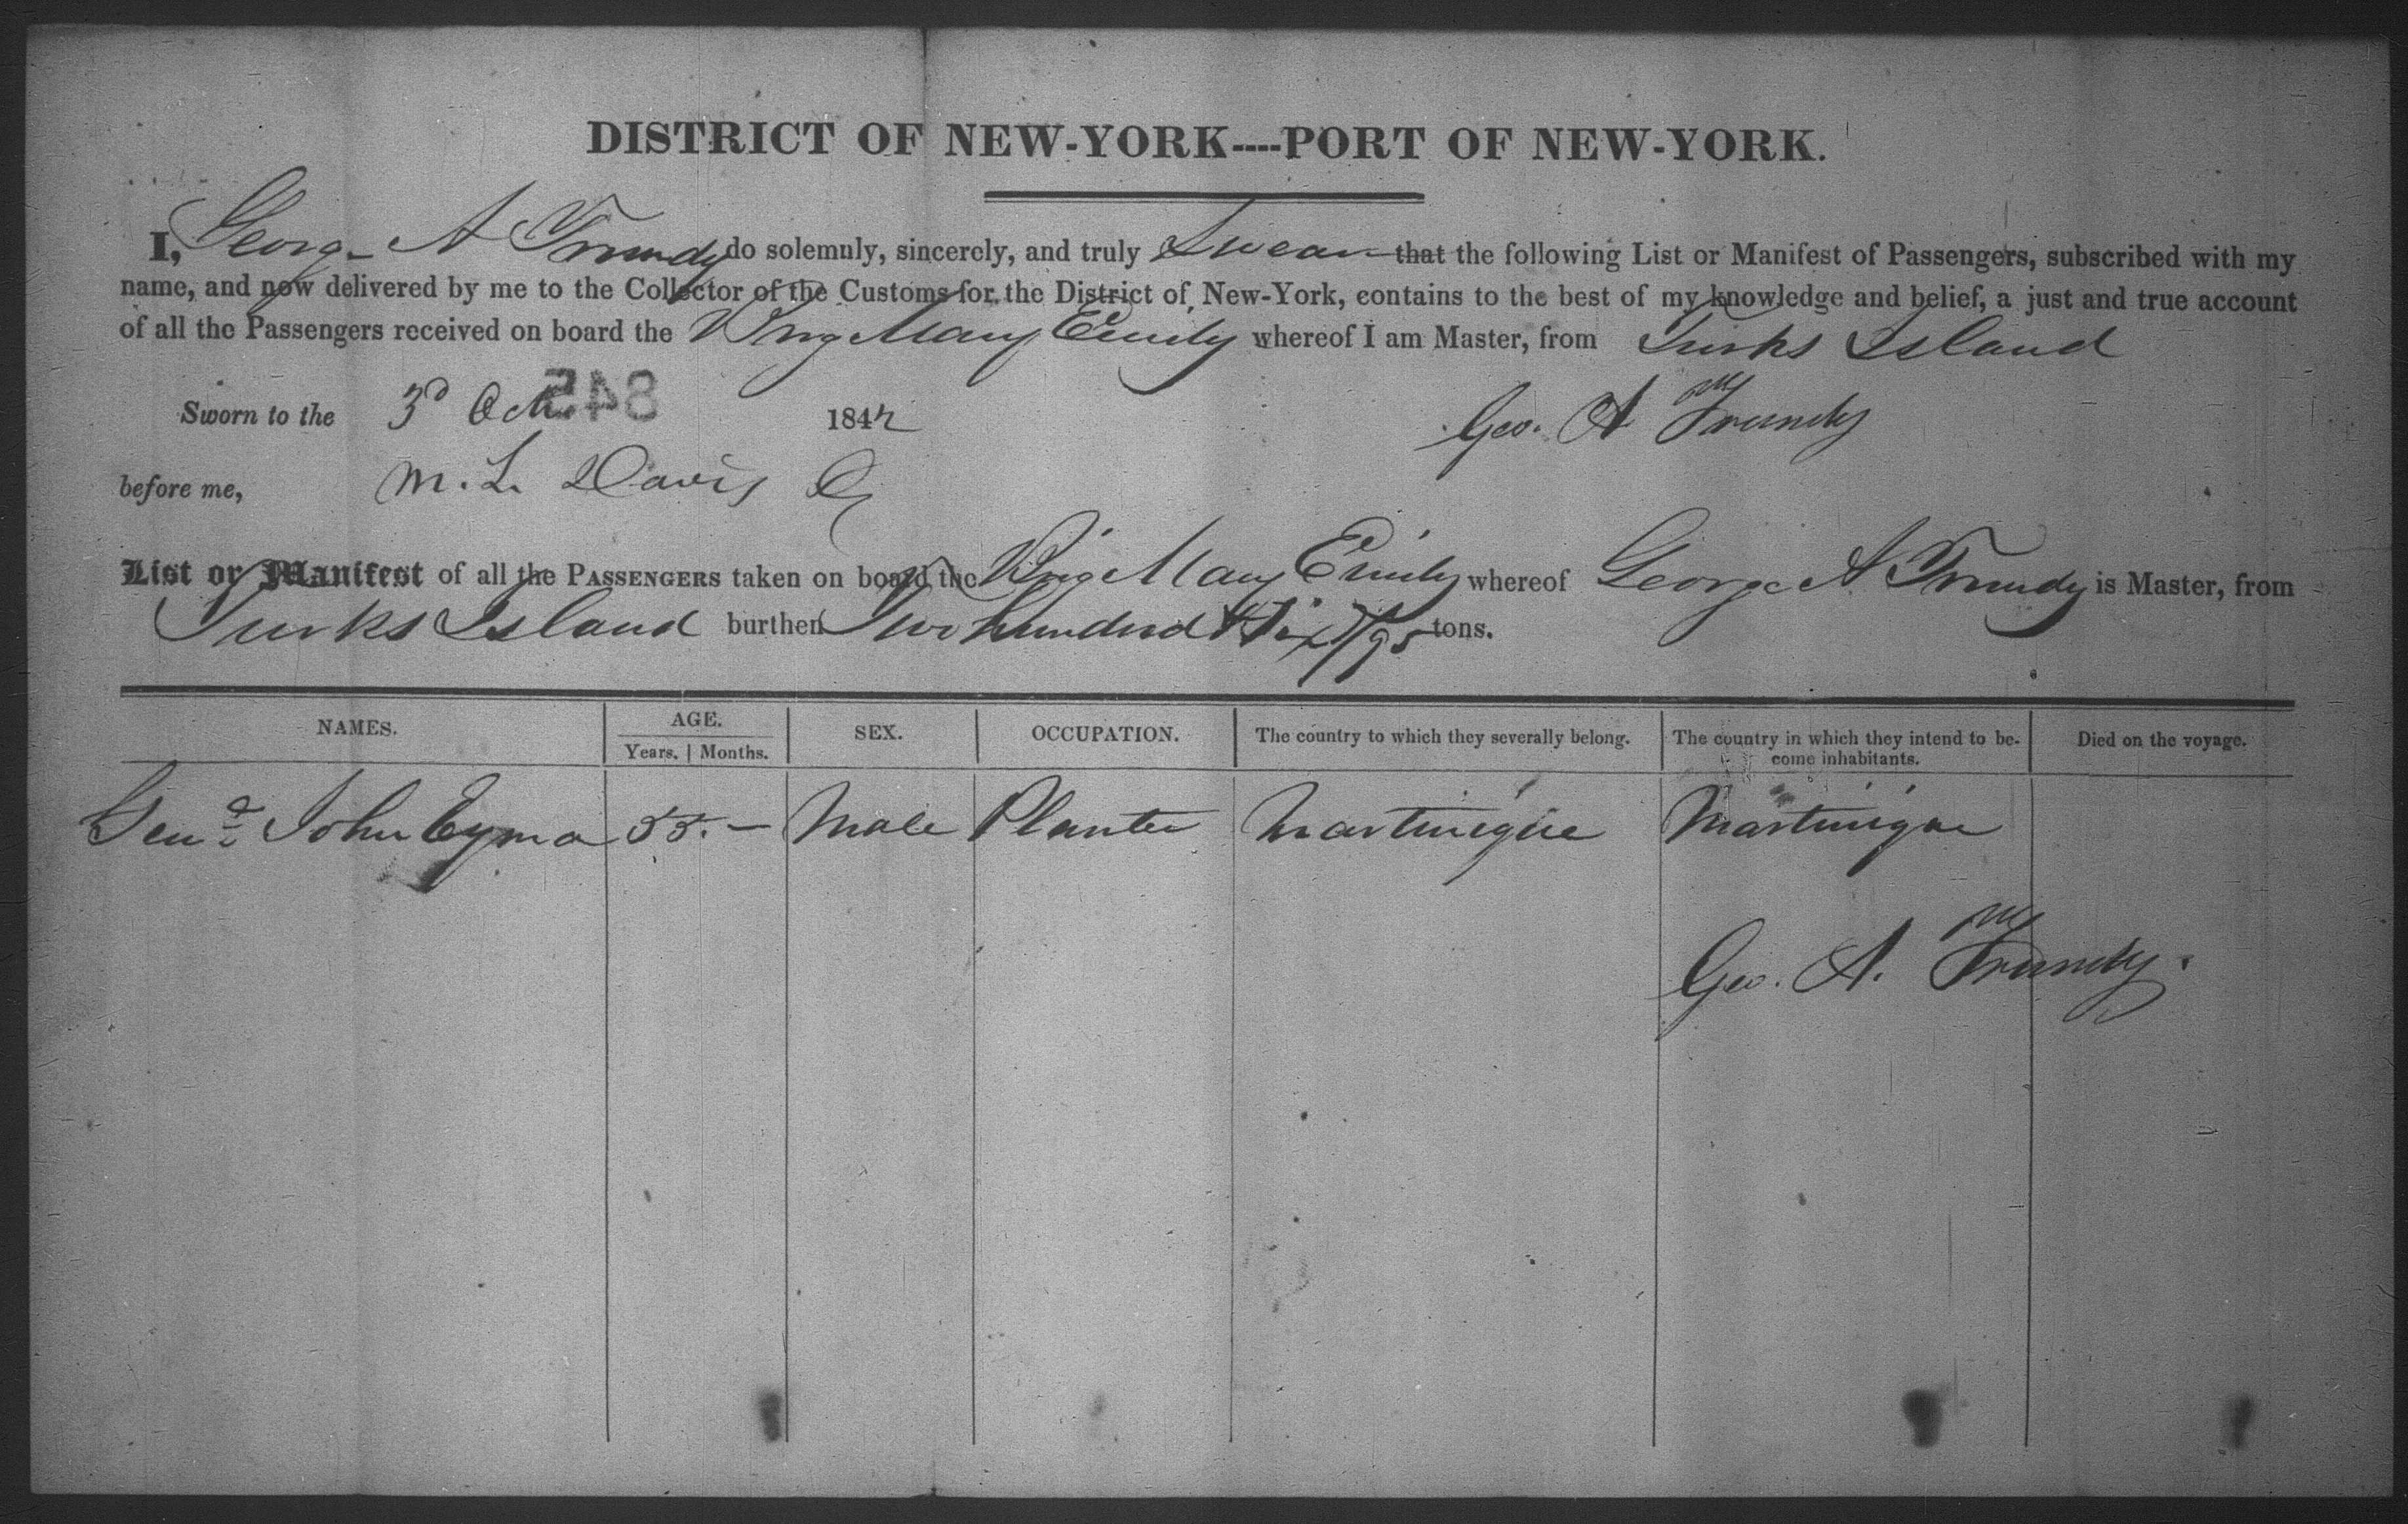 DISTRICT OF NEW-YORK----PORT OF NEW-YORK.
I, George A Trundy do solemnly, sincerely, and truly Swear that the following List or Manifest of Passengers, subscribed with my
name, and now delivered by me to the Collector of the Customs for the District of New-York, contains to the best of my knowledge and belief, a just and true account
of all the Passengers received on board the Brig Mary Emily whereof I am Master, from Turks Island
Sworn to the 3d Oct 845 1842 Geo. A Trundy
before me, M. L. Davis
List or Manifest of all the PASSENGERS taken on board the Brig Mary Emily whereof George A Trundy is Master, from
Turks Island burthen Two hundred & Six /95 tons.
NAMES. AGE. SEX. OCCUPATION. The country to which they severally belong. The country in which they intend to be- Died on the voyage.
Years. | Months. come inhabitants.
John Eyma 55. — Male Planter Martinique Martinique
Geo. A. Trundy.